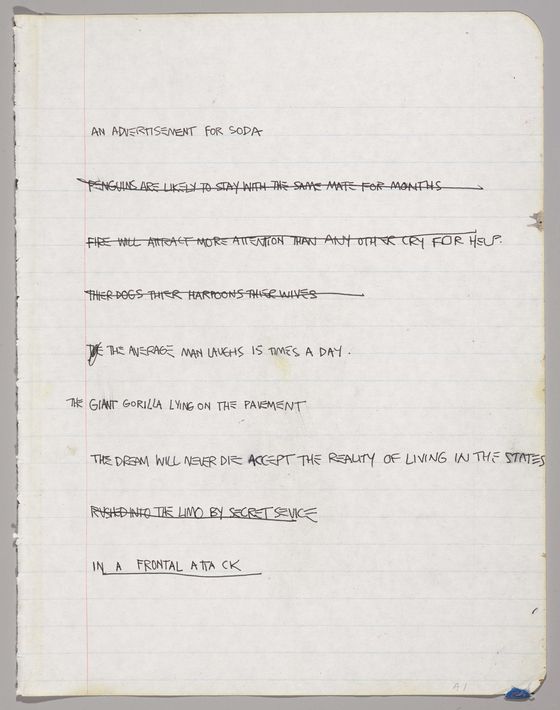 AN ADVERTISEMENT FOR SODA
PENGUINS ARE LIKELY TO STAY WITH THE SAME MATE FOR MONTHS
FIRE WILL ATTRACT MORE ATTENTION THAN ANY OTHER CRY FOR HELP.
THIER DOGS THIER HARPOONS THIER WIVES
THE AVERAGE MAN LAUGHS 15 TIMES A DAY.
THE GIANT GORILLA LYING ON THE PAVEMENT
THE DREAM WILL NEVER DIE ACCEPT THE REALITY OF LIVING IN THE STATES
RUSHED INTO THE LIMO BY SECRET SEVICE
IN A FRONTAL ATTACK